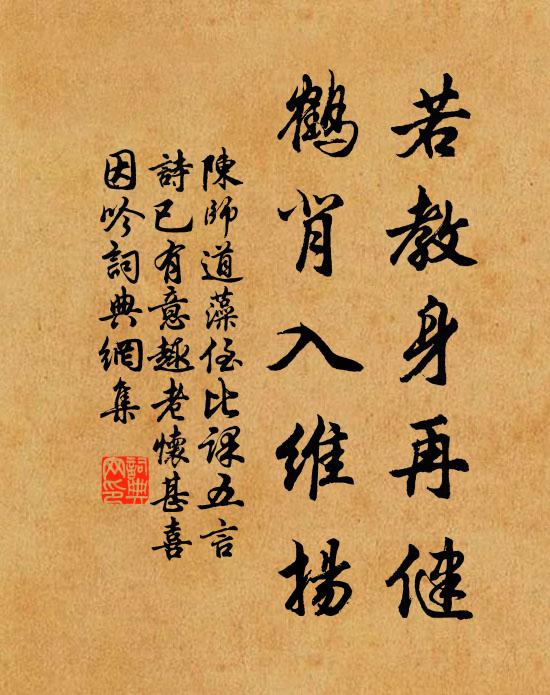 若教身再健
鶴背入維揚
陳師道藻侄比課五言
詩已有意趣老懷甚喜
因吟詞典網集
詞典网印